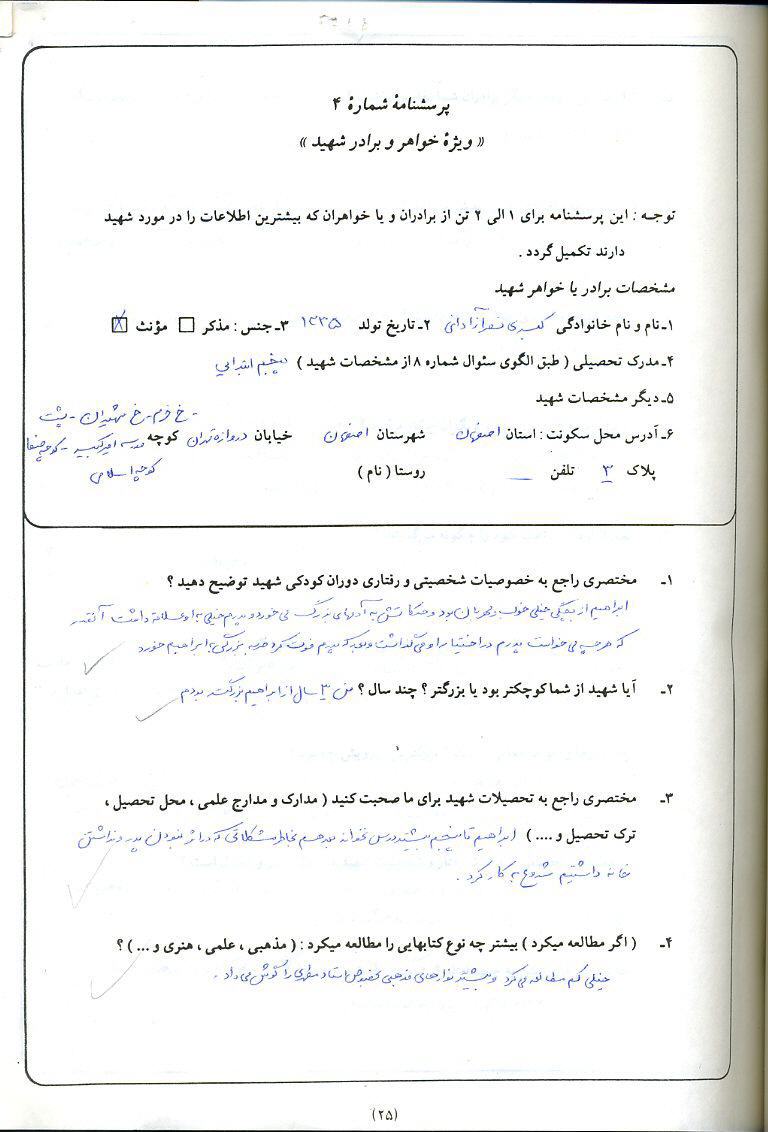 پرسشنامهٔ شمارهٔ ۴
« ویژهٔ خواهر و برادر شهید »
توجـه : این پرسشنامه برای ۱ الی ۲ تن از برادران و یا خواهران که بیشترین اطلاعات را در مورد شهید
دارند تکمیل گردد .
مشخصات برادر یا خواهر شهید
۱ـ نام و نام خانوادگی کبری ۲ـ تاریخ تولد ۱۳۳۵ ۳ـ جنس : مذکر □ مؤنث ☒
۴ـ مدرک تحصیلی ( طبق الگوی سئوال شماره ۸ از مشخصات شهید ) پنجم ابتدایی
۵ـ دیگر مشخصات شهید
۶ـ آدرس محل سکونت : استان اصفهان شهرستان اصفهان خیابان دروازه تهران کوچه
- خ خرم - خ شهیدان - پشت
مدرسه امیرکبیر - کوچه
کوچه اسلامی
پلاک ۳ تلفن — روستا ( نام )
۱ـ مختصری راجع به خصوصیات شخصیتی و رفتاری دوران کودکی شهید توضیح دهید ؟
ابراهیم از بچگی خیلی خوب و مهربان بود و حرکاتش به آدمهای بزرگ می خورد و پدرم خیلی به او علاقه داشت آنقدر
که هرچه می خواست پدرم در اختیار او می گذاشت و بعد که پدرم فوت کرد ضربه بزرگی به ابراهیم خورد
۲ـ آیا شهید از شما کوچکتر بود یا بزرگتر ؟ چند سال ؟ من ۳ سال از ابراهیم بزرگتر بودم
۳ـ مختصری راجع به تحصیلات شهید برای ما صحبت کنید ( مدارک و مدارج علمی ، محل تحصیل ،
ترک تحصیل و .... ) ابراهیم تا پنجم بیشتر درس نخوانده بود هم بخاطر مشکلاتی که در اثر نبودن پدر و نداشتن
خانه داشتیم شروع به کار کرد .
۴ـ ( اگر مطالعه میکرد ) بیشتر چه نوع کتابهایی را مطالعه میکرد : ( مذهبی ، علمی ، هنری و ... ) ؟
خیلی کم مطالعه می کرد و بیشتر نوارهای مذهبی بخصوص استاد مطهری را گوش می داد .
(۲۵)